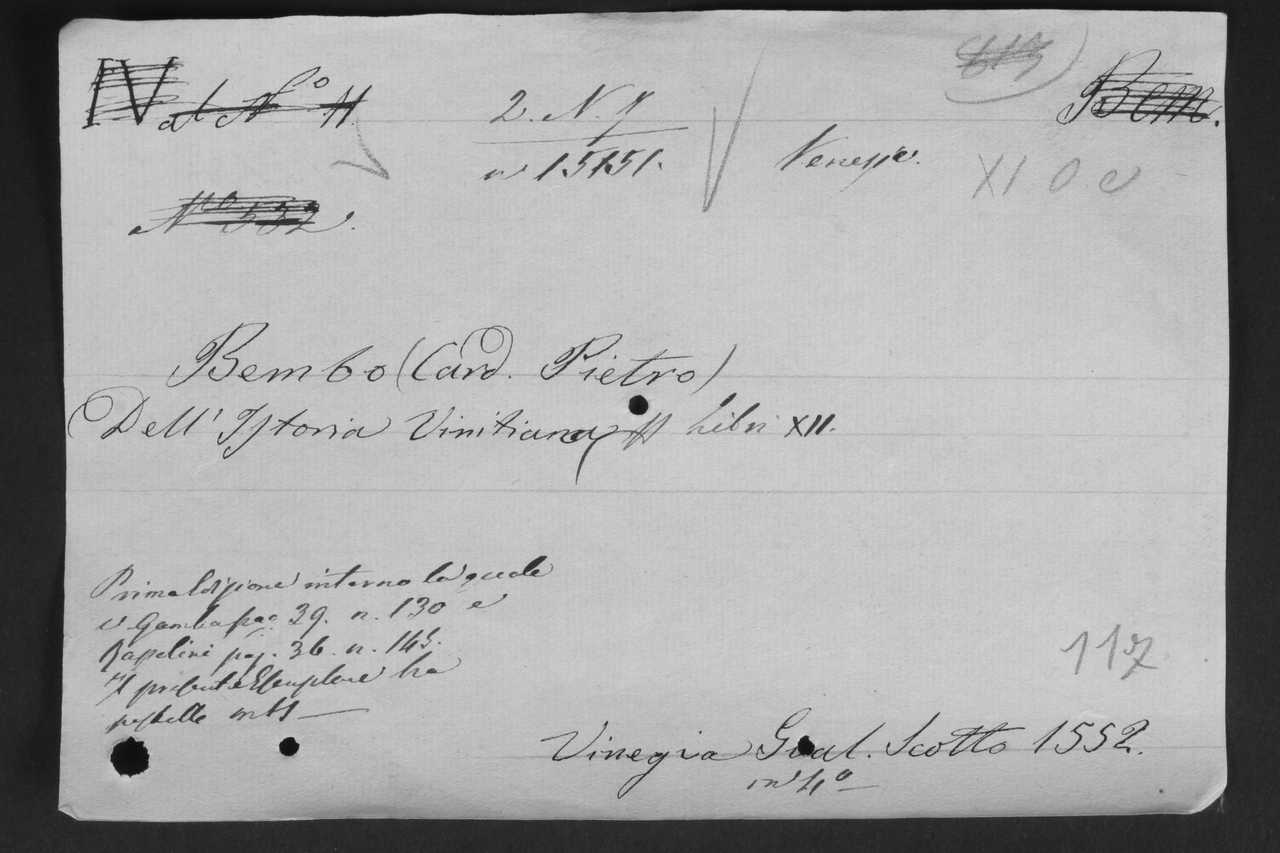 IV al No H
Bem.
2. N. 7
n 15151.
Venezia.
XI O e
No 532.
Bembo (Card. Pietro)
Dell' Istoria Vinitiana Libri XII.
Prima Edizione intorno la quale
v. Gamba pag. 39. n. 130 e
pag. 36. n. 145.
Il presente Esemplare ha
postille mss
117
Vinegia Gual. Scotto 1552.
in 4o